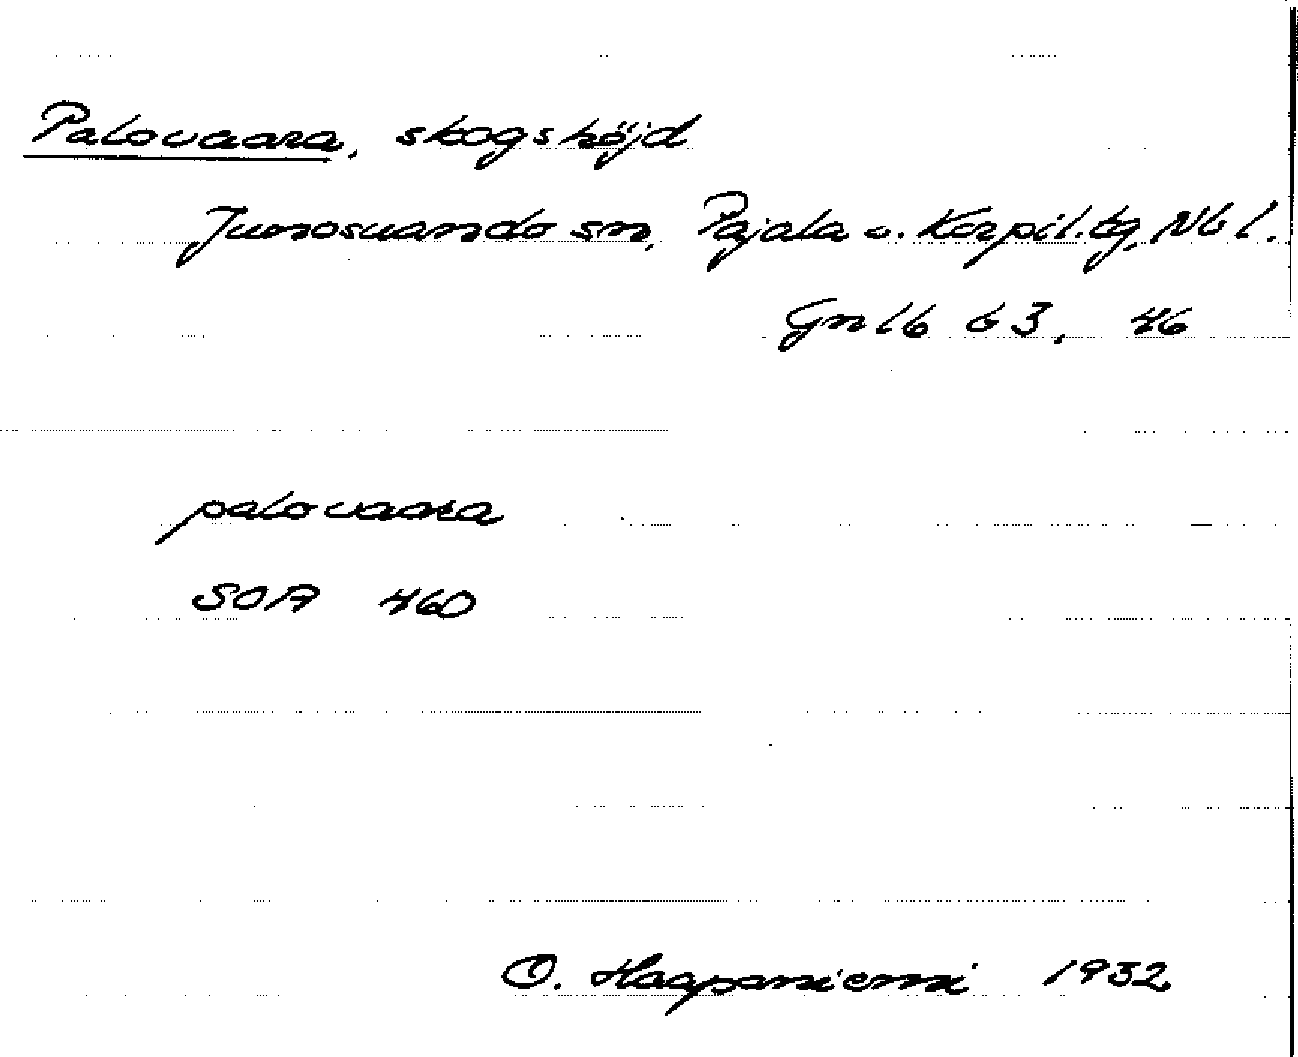 Palovaara, skogshöjd
Junosuando sn, Pajala o. Korpil. tg, Nb l.
Gnlb b 3, 46
palovaara
SOA 460
O. Haapaniemi 1932